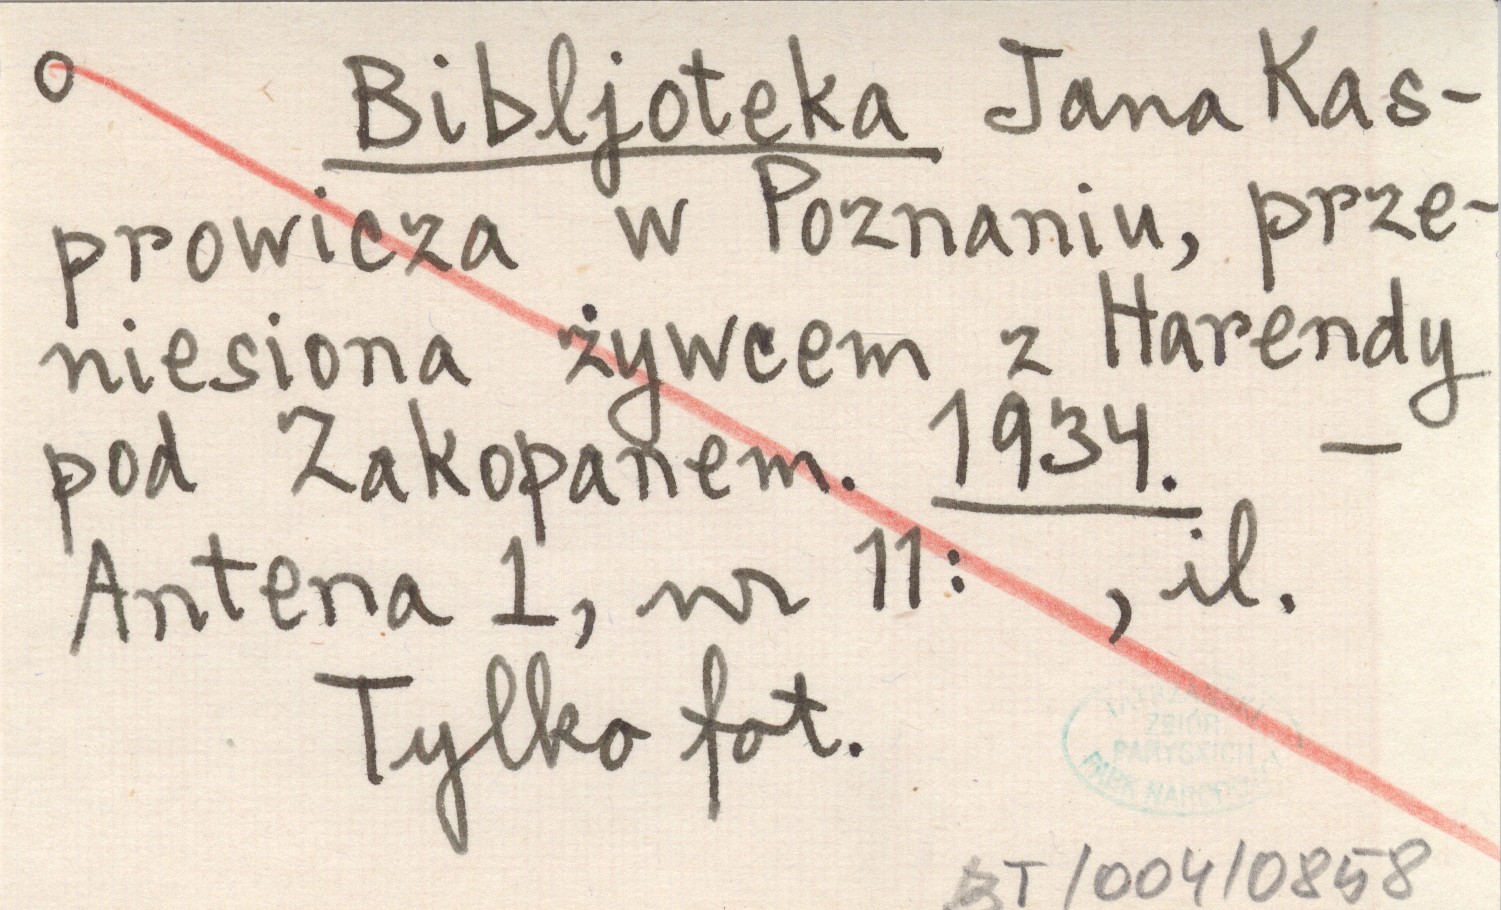 o Bibljoteka Jana Kas-
prowicza w Poznaniu, prze-
niesiona żywcem z Harendy
pod Zakopanem. 1934. —
Antena 1, nr 11: , il.
Tylko fot.
ZBIÓR
PARYSKICH
BT/004/0858